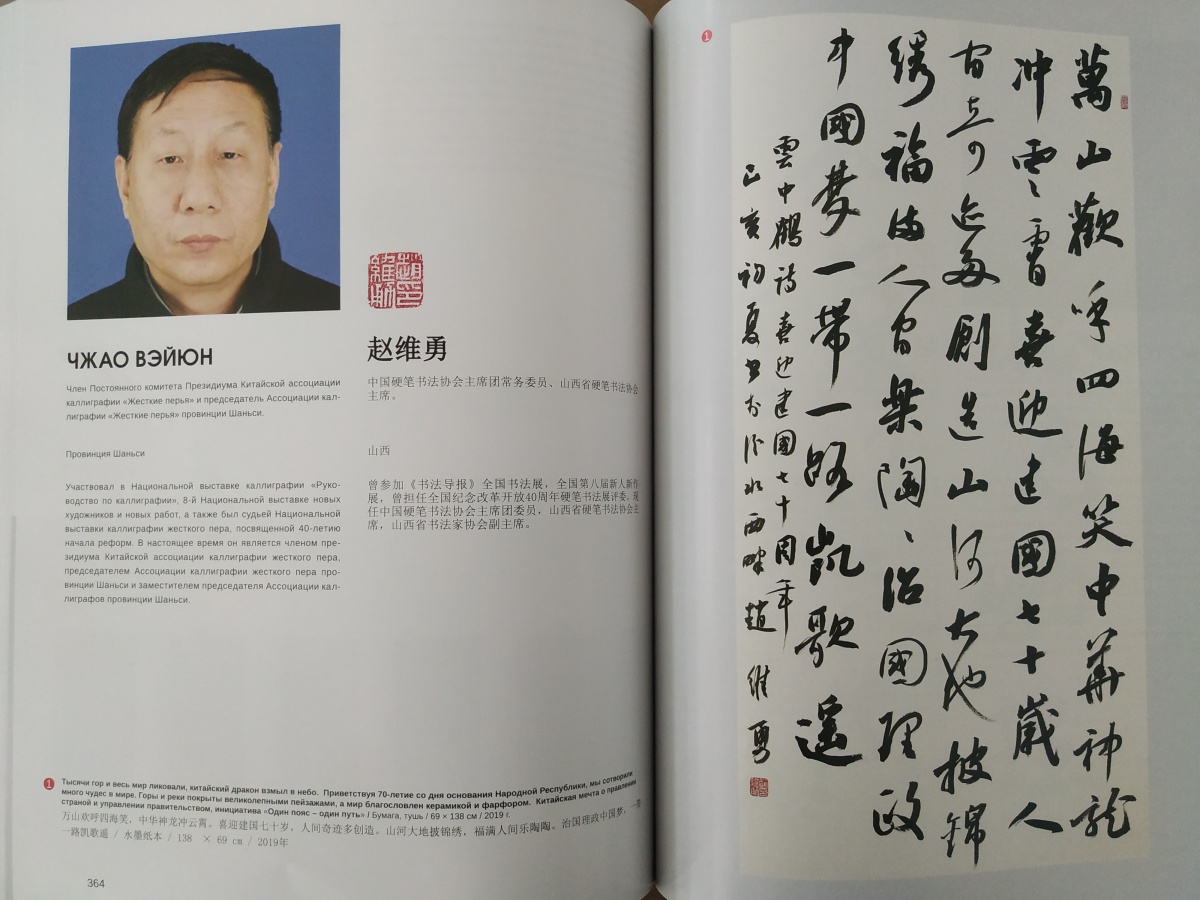 ЧЖАО ВЭЙЮН
Член Постоянного комитета Президиума Китайской ассоциации
каллиграфии «Жесткие перья» и председатель Ассоциации кал-
лиграфии «Жесткие перья» провинции Шаньси.
Провинция Шаньси
Участвовал в Национальной выставке каллиграфии «Руко-
водство по каллиграфии», 8-й Национальной выставке новых
художников и новых работ, а также был судьей Национальной
выставки каллиграфии жесткого пера, посвященной 40-летию
начала реформ. В настоящее время он является членом пре-
зидиума Китайской ассоциации каллиграфии жесткого пера,
председателем Ассоциации каллиграфии жесткого пера про-
винции Шаньси и заместителем председателя Ассоциации кал-
лиграфов провинции Шаньси.
赵维勇
中国硬笔书法协会主席团常务委员、山西省硬笔书法协会
主席。
山西
曾参加《书法导报》全国书法展，全国第八届新人新作
展，曾担任全国纪念改革开放40周年硬笔书法展评委。现
任中国硬笔书法协会主席团委员，山西省硬笔书法协会主
席，山西省书法家协会副主席。
1
Тысячи гор и весь мир ликовали, китайский дракон взмыл в небо. Приветствуя 70-летие со дня основания Народной Республики, мы сотворили
много чудес в мире. Горы и реки покрыты великолепными пейзажами, а мир благословлен керамикой и фарфором. Китайская мечта о правлении
страной и управлении правительством, инициатива «Один пояс – один путь» / Бумага, тушь / 69 × 138 см / 2019 г.
万山欢呼四海笑，中华神龙冲云霄。喜迎建国七十岁，人间奇迹多创造。山河大地披锦绣，福满人间乐陶陶。治国理政中国梦，一带
一路凯歌遥 / 水墨纸本 / 138 × 69 cm / 2019年
364
1
萬山歡呼四海笑中華神龍
冲雲霄喜迎建國七十歲人
间奇迹多創造山河大地披錦
绣福滿人间樂陶、治國理政
中國夢一帶一路凱歌遥
雲中鶴詩喜迎建國七十周年
己亥初夏書於汾水西畔趙維勇